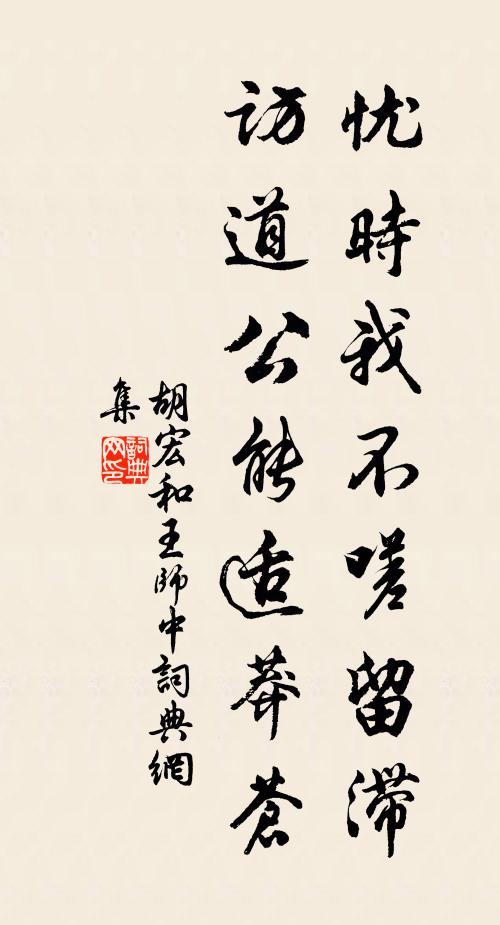 忧時我不嗟留滯
訪道公能适莽蒼
胡宏和王師中詞典網
集
詞典
网印